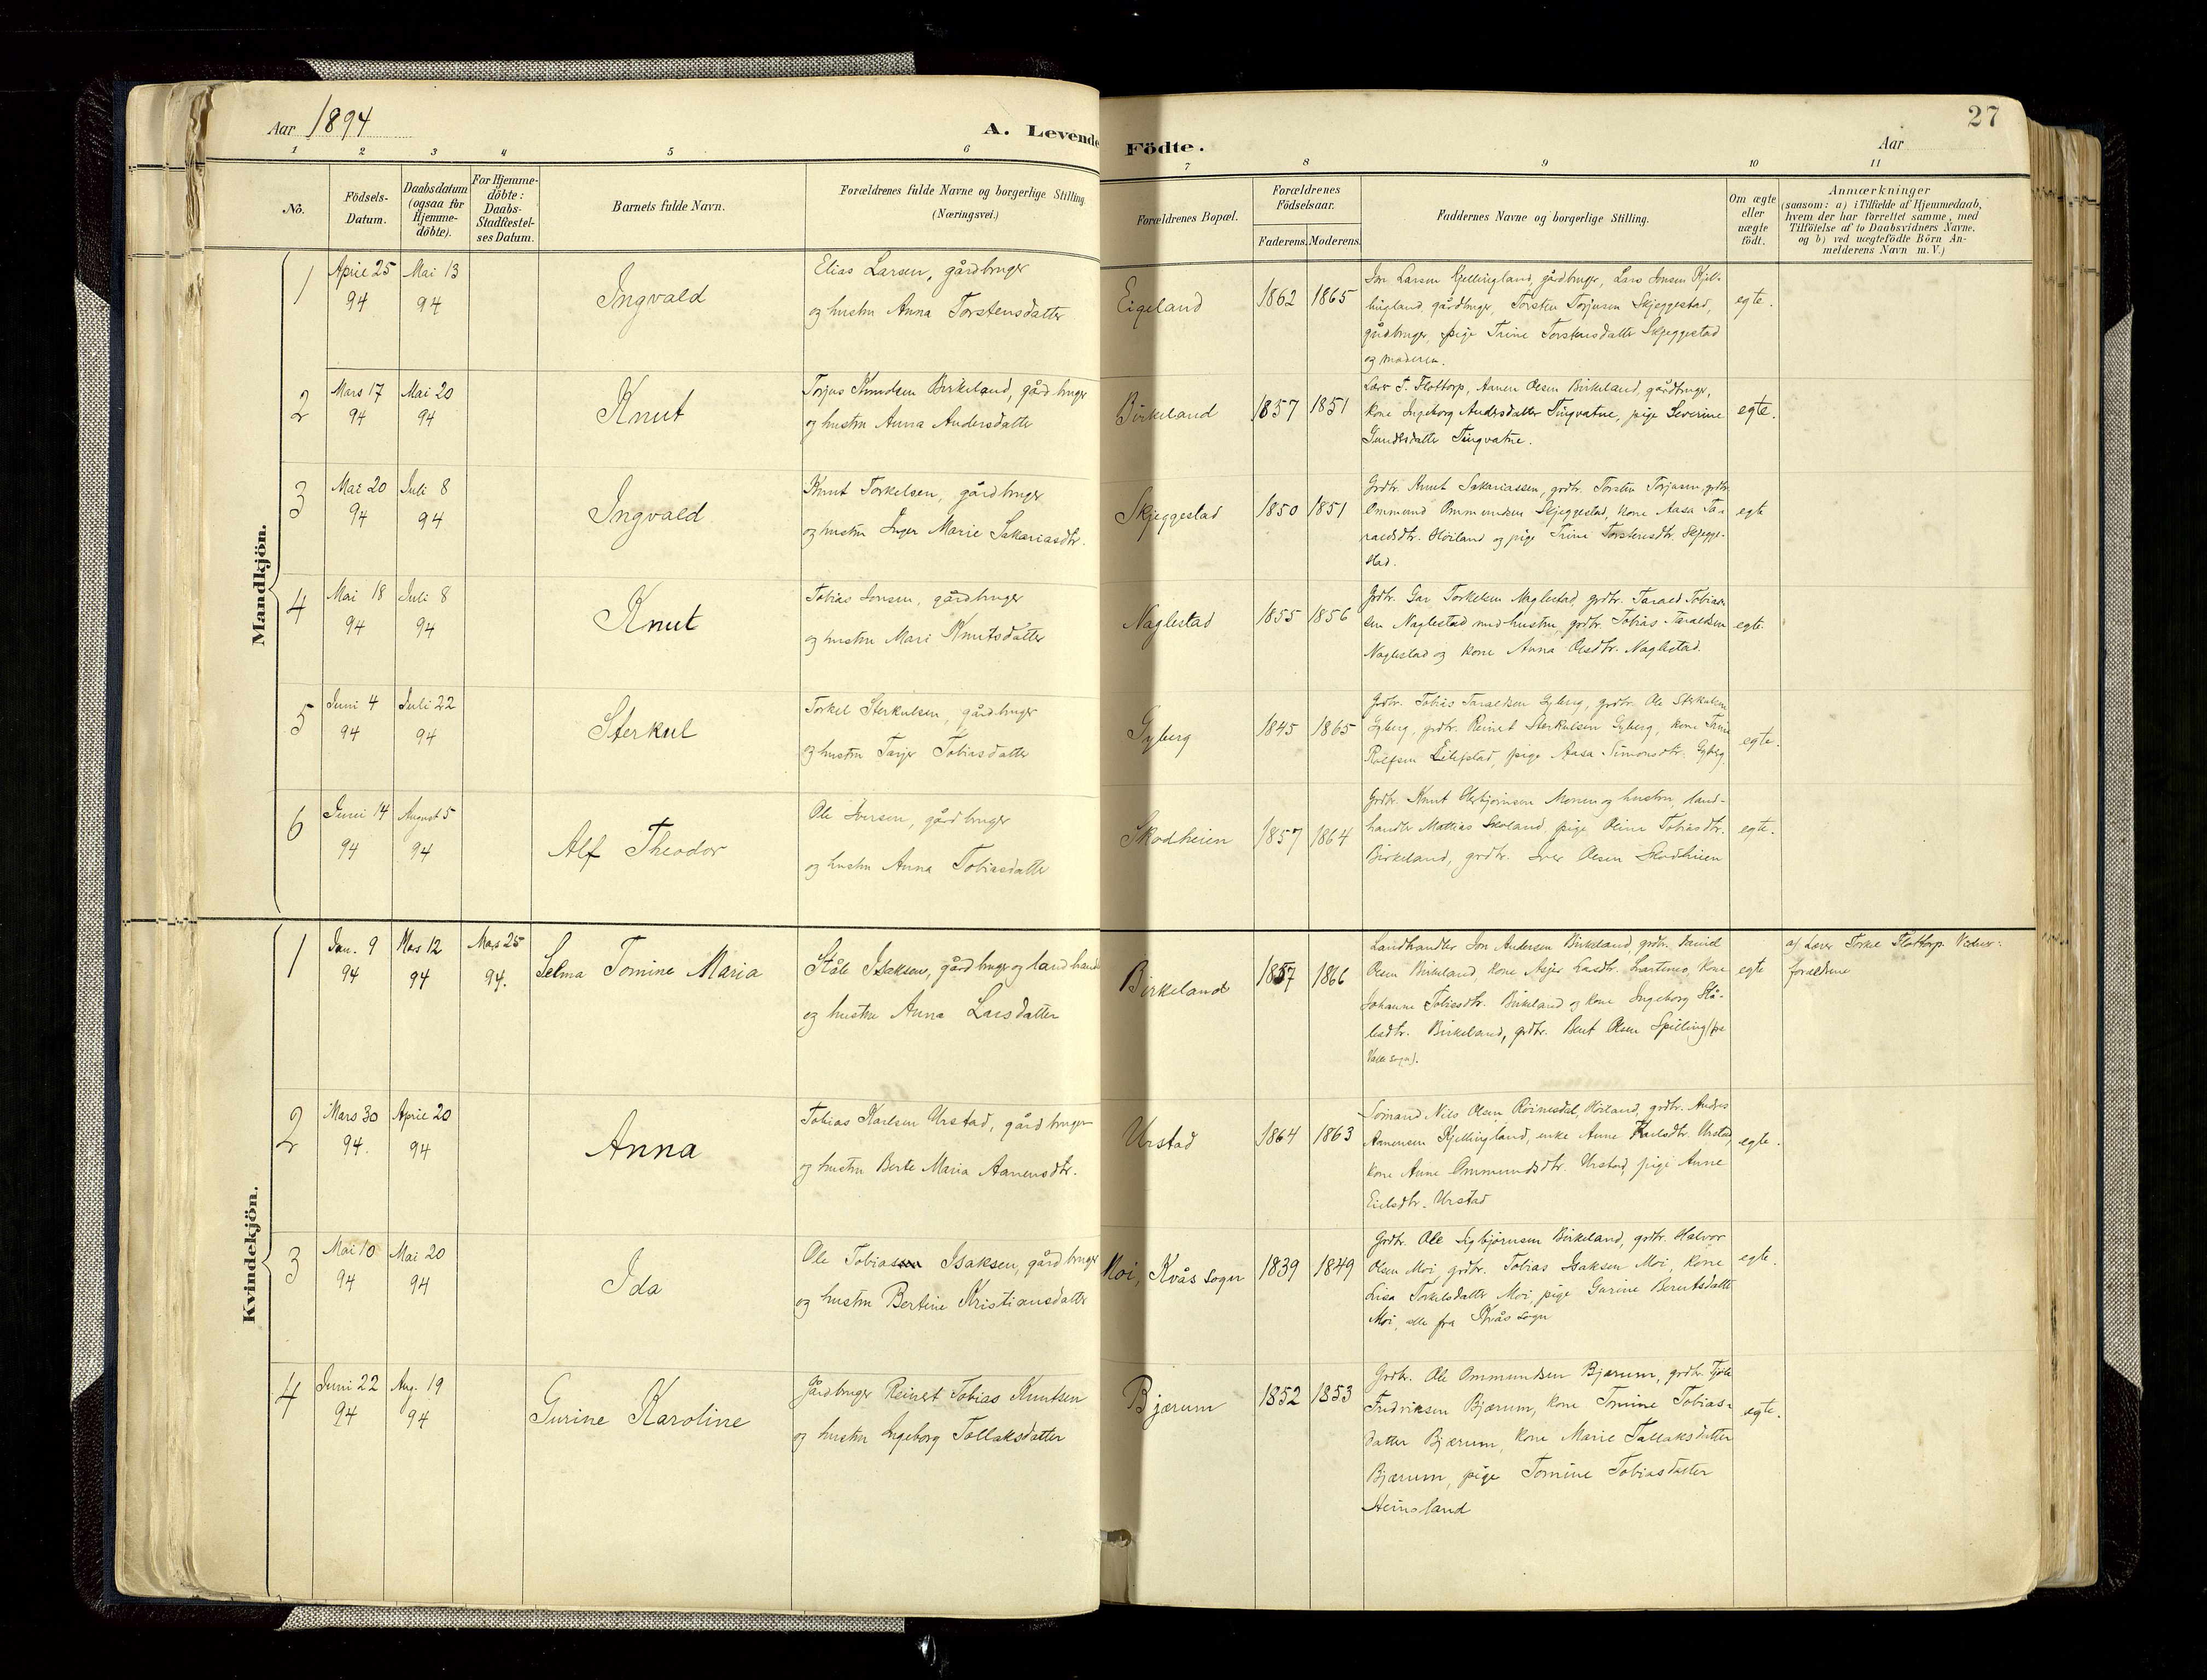 Aar 1894
A. Levende
Födte.
Aar
27
1 2 3 4 5 6 7 8 9 10 11
No.
Födsels-
Datum.
Daabsdatum
(ogsaa for
Hjemme-
döbte).
For Hjemme-
döbte:
Daabs-
Stadfæstel-
ses Datum.
Barnets fulde Navn.
Forældrenes fulde Navne og borgerlige Stilling
(Næringsvei.)
Forældrenes Bopæl.
Forældrenes
Födselsaar.
Faderens. Moderens.
Faddernes Navne og borgerlige Stilling.
Om ægte
eller
uægte
födt.
Anmærkninger
(saasom: a) i Tilfælde af Hjemmedaab,
hvem der har forrettet samme, med
Tilföielse af to Daabsvidners Navne.
og b) ved uægtefödte Börn An-
melderens Navn m. V.)
Mandkjön.
1
April 25
94
Mai 13
94
Ingvald
Elias Larsen, gårdbruger
og hustru Anna Torstensdatter
Eigeland
1862 1865
Jon Larsen Kjellingland, gårdbruger, Lars Jonsen Kjel-
lingland, gårdbruger, Torsten Torjusen Skjeggestad,
gårdbruger, pige Trine Torstensdatter Skjeggestad
og moderen.
egte.
2
Mars 17
94
Mai 20
94
Knut
Torjus Knudsen Birkeland, gårdbruger
og hustru Anna Andersdatter
Birkeland
1857 1851
Lærer T. Flottorp, Aanen Olsen Birkeland, gårdbruger,
kone Ingeborg Andersdatter Tingvatne, pige Severine
Tingvatne.
egte.
3
Mai 20
94
Juli 8
94
Ingvald
Knut Torkelsen, gårdbruger
og hustru Inger Marie Sakariasdtr.
Skjeggestad
1850 1851
Grdbr. Knut Sakariassen, grdbr. Torsten Torjusen, grdbr.
Ommund Ommundsen Skjeggestad, kone Aasa Ta-
raldsdtr. Høiland og pige Trine Torstensdtr. Skjegge-
stad.
egte
4
Mai 18
94
Juli 8
94
Knut
Tobias Jonsen, gårdbruger
og hustru Mari Knutsdatter
Naglestad
1855 1856
Grdbr. Torkelsen Naglestad, grdbr. Tarald Tobias-
sen Naglestad med hustru, grdbr. Tobias Taraldsen
Naglestad og kone Anna Olsdtr. Naglestad.
egte.
5
Juni 4
94
Juli 22
94
Sterkul
Torkel Sterkulsen, gårdbruger
og hustru Tarjer Tobiasdatter
Gyberg
1845 1865
Grdbr. Tobias Taraldsen Gyberg, grdbr. Ole Sterkulsen
Gyberg, grdbr. Reinert Sterkulsen Gyberg, kone Trine
Rolfsen Eilefstad, pige Aasa Simonsdtr. Gyberg
egte.
6
Juni 14
94
August 5
94
Alf Theodor
Ole Iversen, gårdbruger
og hustru Anna Tobiasdatter
Skodheien
1857 1864
Grdbr. Knut Asbjørnsen Monen og hustru, land-
handler Mathias Skoland, pige Oline Tobiasdtr.
Birkeland, grdbr. Iver Olsen Skodheien
egte.
Kvindekjön.
1
Jan. 9
94
Mars 12
94
Mars 25
94.
Selma Tomine Maria
Ståle Isaksen, gårdbruger og landhandl
og hustru Anna Larsdatter
Birkeland
1857 1866
Landhandler Jon Andersen Birkeland, grdbr. Daniel
Olsen Birkeland, kone Asjer Lasdtr. kone
Johanne Tobiasdtr. Birkeland og kone Ingeborg Stå-
lesdtr. Birkeland, grdbr. Bent Olsen Spilling (fra
Valle sogn).
egte
af Lærer Torkel Flottorp. Vidner:
forældrene
2
Mars 30
94.
April 20
94
Anna
Tobias Karlsen Urstad, gårdbruger
og hustru Berte Maria Aanensdtr.
Urstad
1864 1863
Sømand Nils Olsen Høiland, grdbr. Andreas
Aanensen Kjellingland, enke Anne Karlsdtr. Urstad,
kone Anne Ommundsdtr. Urstad, pige Anne
Urstad
egte.
3
Mai 10
94
Mai 20
94
Ida
Ole Tobiassen Isaksen, gårdbruger
og hustru Bertine Kristiansdatter
Moi, Kvås sogn
1839 1849
Grdbr. Ole Sigbjørnsen Birkeland, grdbr. Halvor
Olsen Moi, grdbr. Tobias Isaksen Moi, kone
Lisa Torkelsdatter Moi, pige Gurine Berntsdatter
Moi, alle fra Kvås sogn
egte.
4
Juni 22
94
Aug. 19
94
Gurine Karoline
Gårdbruger Reinert Tobias Knutsen
og hustru Ingeborg Tollaksdatter
Bjærum
1852 1853
Grdbr. Ole Ommundsen Bjærum, grdbr.
Fredriksen Bjærum, kone Tomine Tobias-
datter Bjærum, kone Marie Tallaksdatter
Bjærum, pige Tomine Tobiasdatter
Heinsland
egte.